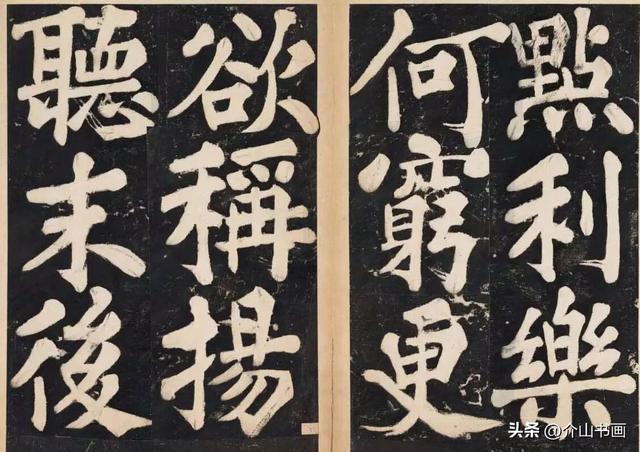 點利樂
何窮更
欲稱揚
聽末後
头条@介山书画